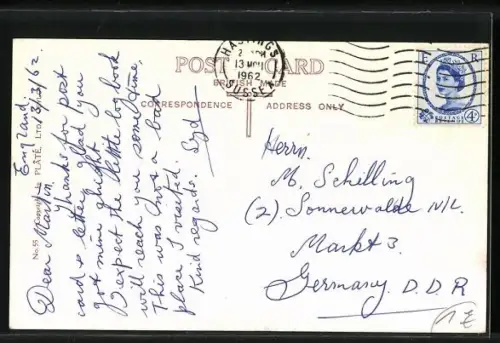 POST CARD
BRITISH MADE
CORRESPONDENCE
ADDRESS ONLY
HASTINGS
13 MCH
1962
SUSSEX
E R
POSTAGE
4D
England.
13/3/62.
Dear Martin
Thanks for post
card & letter, glad you
got mine alright
I expect the little log book
will reach you some time,
This was once a boat
place I visited.
Kind regards. Syd
Herrn.
M. Schilling
(2). Sonnewalde N/L.
Markt 3.
Germany. D.D.R
1E
No. 55
PLATE, LTD.